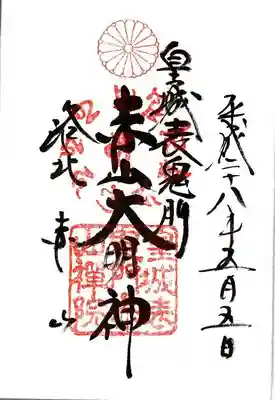 平成二十八年五月五日
皇城表鬼門
赤山大明神
洛北 赤山
皇城表
鬼門赤
山禅院